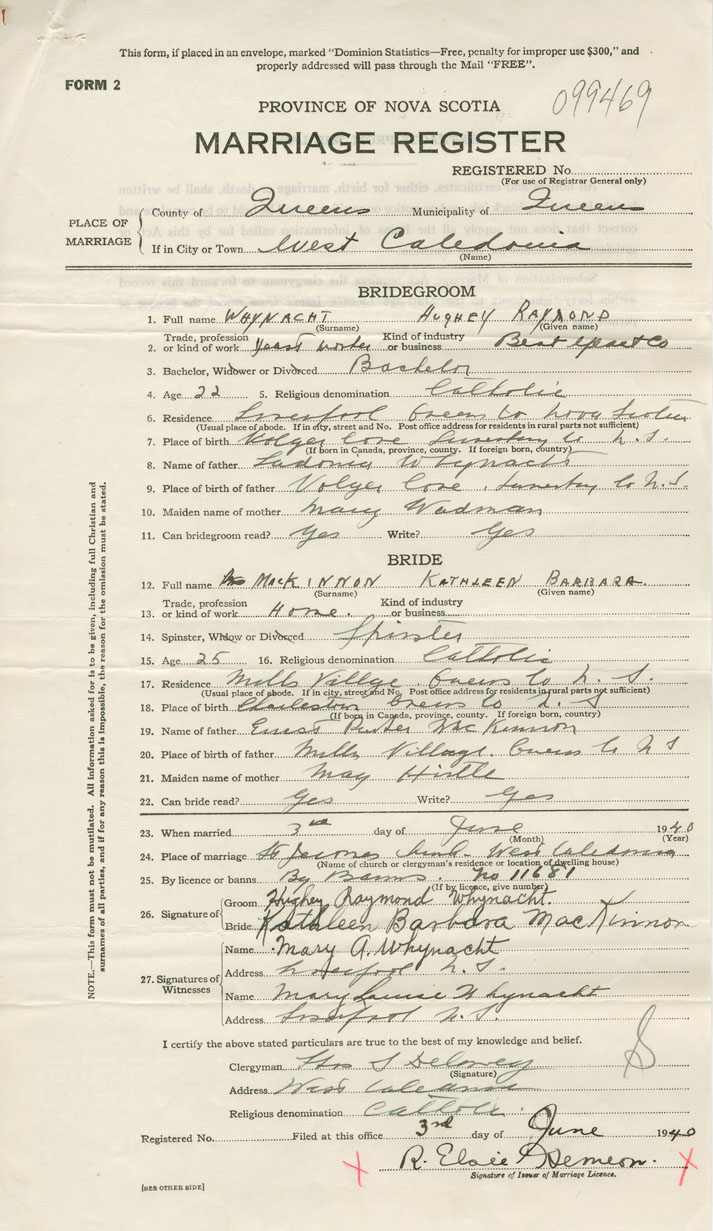 This form, if placed in an envelope, marked "Dominion Statistics—Free, penalty for improper use $300," and
properly addressed will pass through the Mail "FREE".
FORM 2
099469
PROVINCE OF NOVA SCOTIA
MARRIAGE REGISTER
REGISTERED No.
(For use of Registrar General only)
PLACE OF MARRIAGE
County of Queens Municipality of Queens
If in City or Town West Caledonia
(Name)
BRIDEGROOM
1. Full name WHYNACHT HUGHEY RAYMOND
(Surname) (Given name)
Trade, profession Kind of industry
2. or kind of work worker or business
3. Bachelor, Widower or Divorced Bachelor
4. Age 22 5. Religious denomination Catholic
6. Residence Liverpool Queens Co Nova Scotia
(Usual place of abode. If in city, street and No. Post office address for residents in rural parts not sufficient)
7. Place of birth Volger Cove Lunenburg Co N.S.
(If born in Canada, province, county. If foreign born, country)
8. Name of father Whynacht
9. Place of birth of father Volger Cove, Lunenburg Co N.S.
10. Maiden name of mother Mary Wadman
11. Can bridegroom read? Yes Write? Yes
BRIDE
12. Full name MacKINNON KATHLEEN BARBARA
(Surname) (Given name)
Trade, profession Kind of industry
13. or kind of work Home. or business
14. Spinster, Widow or Divorced Spinster
15. Age 25 16. Religious denomination Catholic
17. Residence Mills Village Queens Co N. S.
(Usual place of abode. If in city, street and No. Post office address for residents in rural parts not sufficient)
18. Place of birth Charleston Queens Co N. S
(If born in Canada, province, county. If foreign born, country)
19. Name of father Ernest MacKinnon
20. Place of birth of father Mills Village. Queens Co N S
21. Maiden name of mother May Hirtle
22. Can bride read? Yes Write? Yes
23. When married 3rd day of June 1940
(Month) (Year)
24. Place of marriage St Church West Caledonia
(Name of church or clergyman's residence or location of dwelling house)
25. By licence or banns By Banns. No 11681
(If by licence, give number)
26. Signature of
Groom Hughey Raymond Whynacht.
Bride Kathleen Barbara MacKinnon
27. Signatures of Witnesses
Name Mary A. Whynacht
Address Liverpool N.S.
Name Mary Louise Whynacht
Address Liverpool N.S.
I certify the above stated particulars are true to the best of my knowledge and belief.
Clergyman
(Signature)
Address West Caledonia
Religious denomination Catholic
Registered No. Filed at this office 3rd day of June 1940
R. Elsie
Signature of Issuer of Marriage Licence.
[SEE OTHER SIDE]
NOTE.—This form must not be mutilated. All information asked for is to be given, including full Christian and
surnames of all parties, and if for any reason this is impossible, the reason for the omission must be stated.